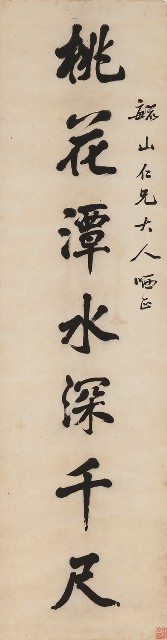 桃花潭水深千尺
山仁兄大人哂正